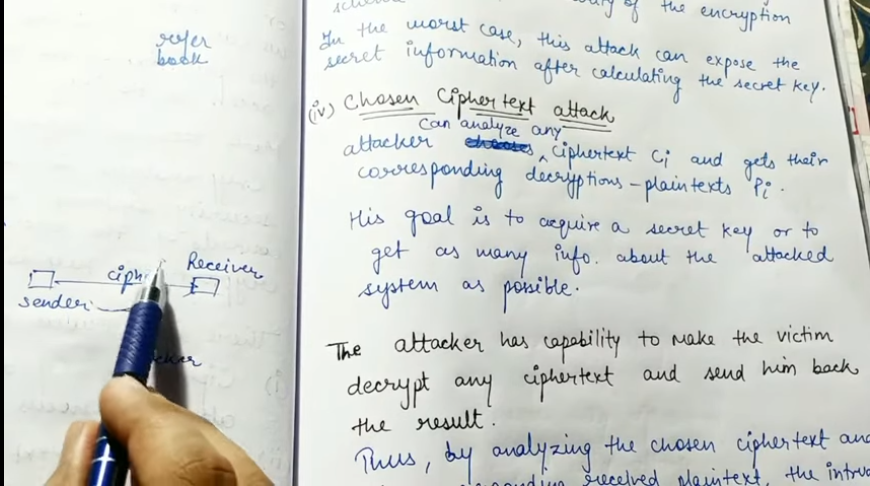 refer
back
ciph
Receiver
sender
of the encryption
In the worst case, this attack can expose the
secret information after calculating the secret key.
(iv) Chosen Ciphertext attack
Can analyze any
attacker ciphertext Ci and gets their
corresponding decryptions - plaintexts Pi.
His goal is to acquire a secret key or to
get as many info. about the attacked
system as possible.
The attacker has capability to make the victim
decrypt any ciphertext and send him back
the result.
Thus, by analyzing the chosen ciphertext and
received plaintext, the